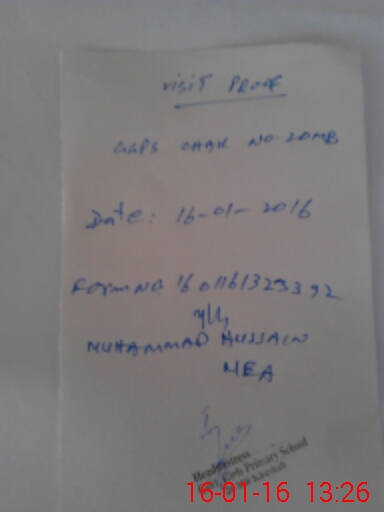 VISIT PROOF
GGPS CHAK NO. 20MB
Date: 16-01-2016
Form NO. 1601161323392
MUHAMMAD HUSSAIN
MEA
Headmistress
Govt. Girls Primary School
16-01-16 13:26